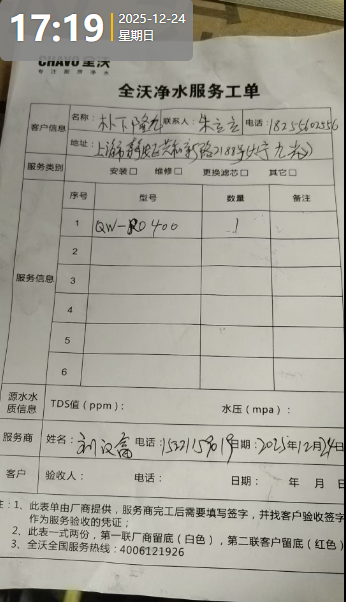 17:19
2025-12-24
星期日
CHAVO 全沃
专注商用净水
全沃净水服务工单
客户信息 名称: 联系人: 朱 电话: 18255602556
地址: 上海市静安区共和新路2188号
服务类别 安装□ 维修□ 更换滤芯□ 其它□
服务信息 序号 型号 数量 备注
1 QW-RO 400 1
2
3
4
5
6
源水水质信息 TDS值(ppm): 水压(mpa):
服务商 姓名: 刘汉富 电话: 日期: 2025年12月24日
客户 验收人: 电话: 日期: 年 月 日
注: 1、此表单由厂商提供,服务商完工后需要填写签字,并找客户验收签字
作为服务验收的凭证;
2、此表一式两份,第一联厂商留底(白色),第二联客户留底(红色)
3、全沃全国服务热线: 4006121926